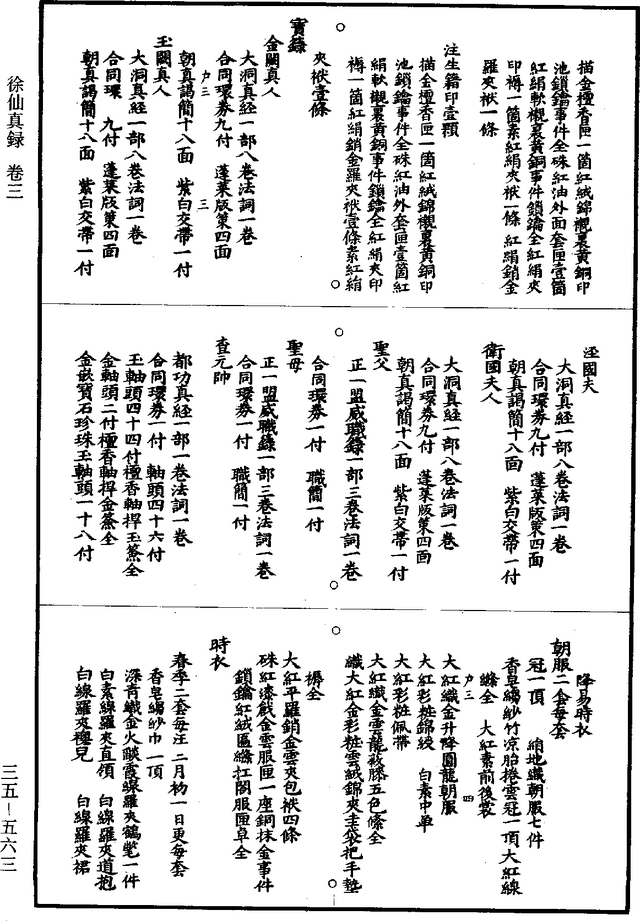 徐仙真録 卷三
描金檀香匣一箇紅絨錦襯裏黄銅印
池鎖鑰事件全硃紅油外面套匣壹箇
紅絹軟襯裏黄銅事件鎖鑰全紅絹夾
印褥一箇素紅絹夾袱一條 紅絹銷金
羅夾袱一條
注生籍印壹顆
描金檀香匣一箇紅絨錦襯裏黄銅印
池鎖鑰事件全硃紅油外套匣壹箇紅
絹軟襯裏黄銅事件鎖鑰全紅絹夾印
褥一箇紅絹銷金羅夾袱壹條素紅絹
夾袱壹條
寳錄
金闕真人
大洞真経一部八卷法詞一卷
合同環券九付 蓬莱版策四面
朝真謁簡十八面 紫白交帶一付
三
玉闕真人
大洞真経一部八卷法詞一卷
合同環 九付 蓬莱版策四面
朝真謁簡十八面 紫白交帶一付
涇國夫
大洞真経一部八卷法詞一卷
合同環券九付 蓬莱版策四面
朝真謁簡十八面 紫白交帶一付
衛國夫人
大洞真経一部八卷法詞一卷
合同環券九付 蓬莱版策四面
朝真謁簡十八面 紫白交帶一付
聖父
正一盟威職錄一部三卷法詞一卷
合同環券一付 職簡一付
聖母
正一盟威職錄一部三卷法詞一卷
合同環券一付 職簡一付
查元帥
都功真経一部一卷法詞一卷
合同環券一付 軸頭四十六付
玉軸頭四十四付檀香軸桿玉簽全
金軸頭二付檀香軸桿金簽全
金嵌寳石珍珠玉軸頭一十八付
降易時衣
朝服二套每套
冠一頂 絹地織朝服七件
香皂縐紗竹凉胎捲雲冠一頂大紅線
縧全 大紅素前後裳
四
大紅織金升降團龍朝服
大紅彩粧錦綬 白素中单
大紅彩粧佩帶
大紅織金雲龍蔽膝五色縧全
織大紅金彩粧雲絨錦夾圭袋把手墊
褥全
大紅平羅銷金雲夾包袱四條
硃紅漆戧金雲服匣一座銅抹金事件
鎖鑰紅絨匾縧扛閣服匣卓全
時衣
春季二套每注二月初一日更每套
香皂縐紗巾一頂
深青織金火談霞線羅夾鶴氅一件
白素線羅夾直領 白線羅夾道抱
白線羅夾襖兒 白線羅夾裙
三五—五六三